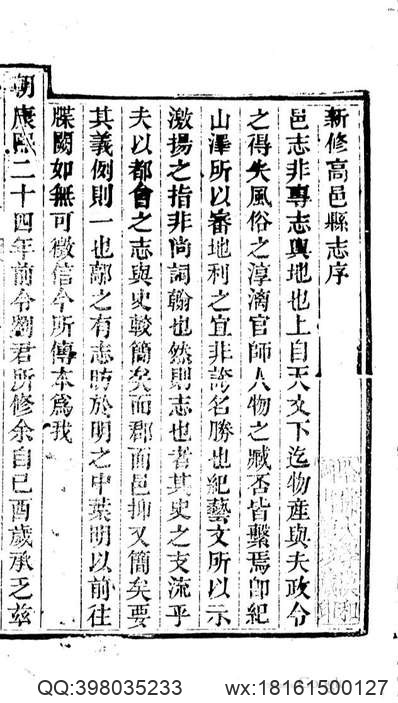 新修高邑縣志序
邑志非專志輿地也上自天文下迄物產與夫政令
之得失風俗之淳漓官師人物之臧否皆繫焉卽紀
山澤所以審地利之宜非誇名勝也紀藝文所以示
激揚之指非尚詞翰也然則志也者其史之支流乎
夫以都會之志與史較簡矣而郡而邑抑又簡矣要
其義例則一也鄗之有志昉於明之中葉明以前往
牒闕如無可徵信今所傳本爲我
朝康熙二十四年前令劉君所修余自己酉歲承乏茲
QQ:398035233 wx:18161500127